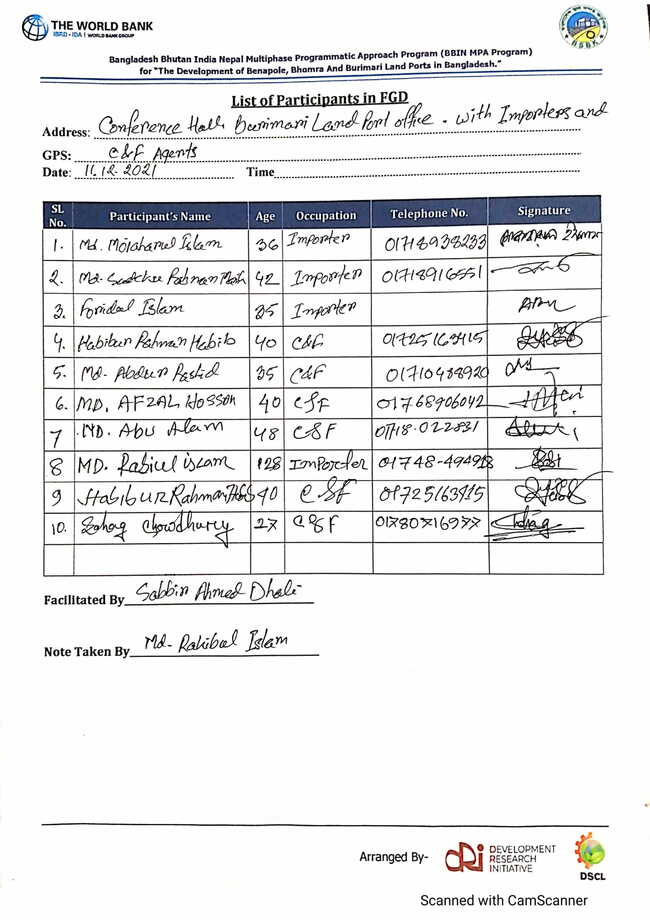 THE WORLD BANK
IBRD - IDA | WORLD BANK GROUP
Bangladesh Bhutan India Nepal Multiphase Programmatic Approach Program (BBIN MPA Program)
for "The Development of Benapole, Bhomra And Burimari Land Ports in Bangladesh."
List of Participants in FGD
Address: Conference Hall, Burimari Land Port office. with Importers and
GPS: C&F Agents
Date: 11.12.2021 Time
SL No. Participant's Name Age Occupation Telephone No. Signature
1. Md. Islam 36 Importer 01718938233
2. Md. Rahman 42 Importer 01718916551
3. Foridal Islam 35 Importer
4. Habibur Rahman Habib 40 C&F 01725163915
5. Md. Abdur Rashid 35 C&F 01710488920
6. MD. AFZAL HOSSON 40 C&F 01768906042
7 MD. Abu Alam 48 C&F 01718-022831
8 MD. Rabiul islam 28 Importer 01748-494918
9 Habibur Rahman 40 C&F 01725163915
10. Sohag Chowdhury 27 C&F 01780716977
Facilitated By Sabbir Ahmed Dhali
Note Taken By Md. Rakibul Islam
Arranged By-
DRI DEVELOPMENT
RESEARCH
INITIATIVE
DSCL
Scanned with CamScanner